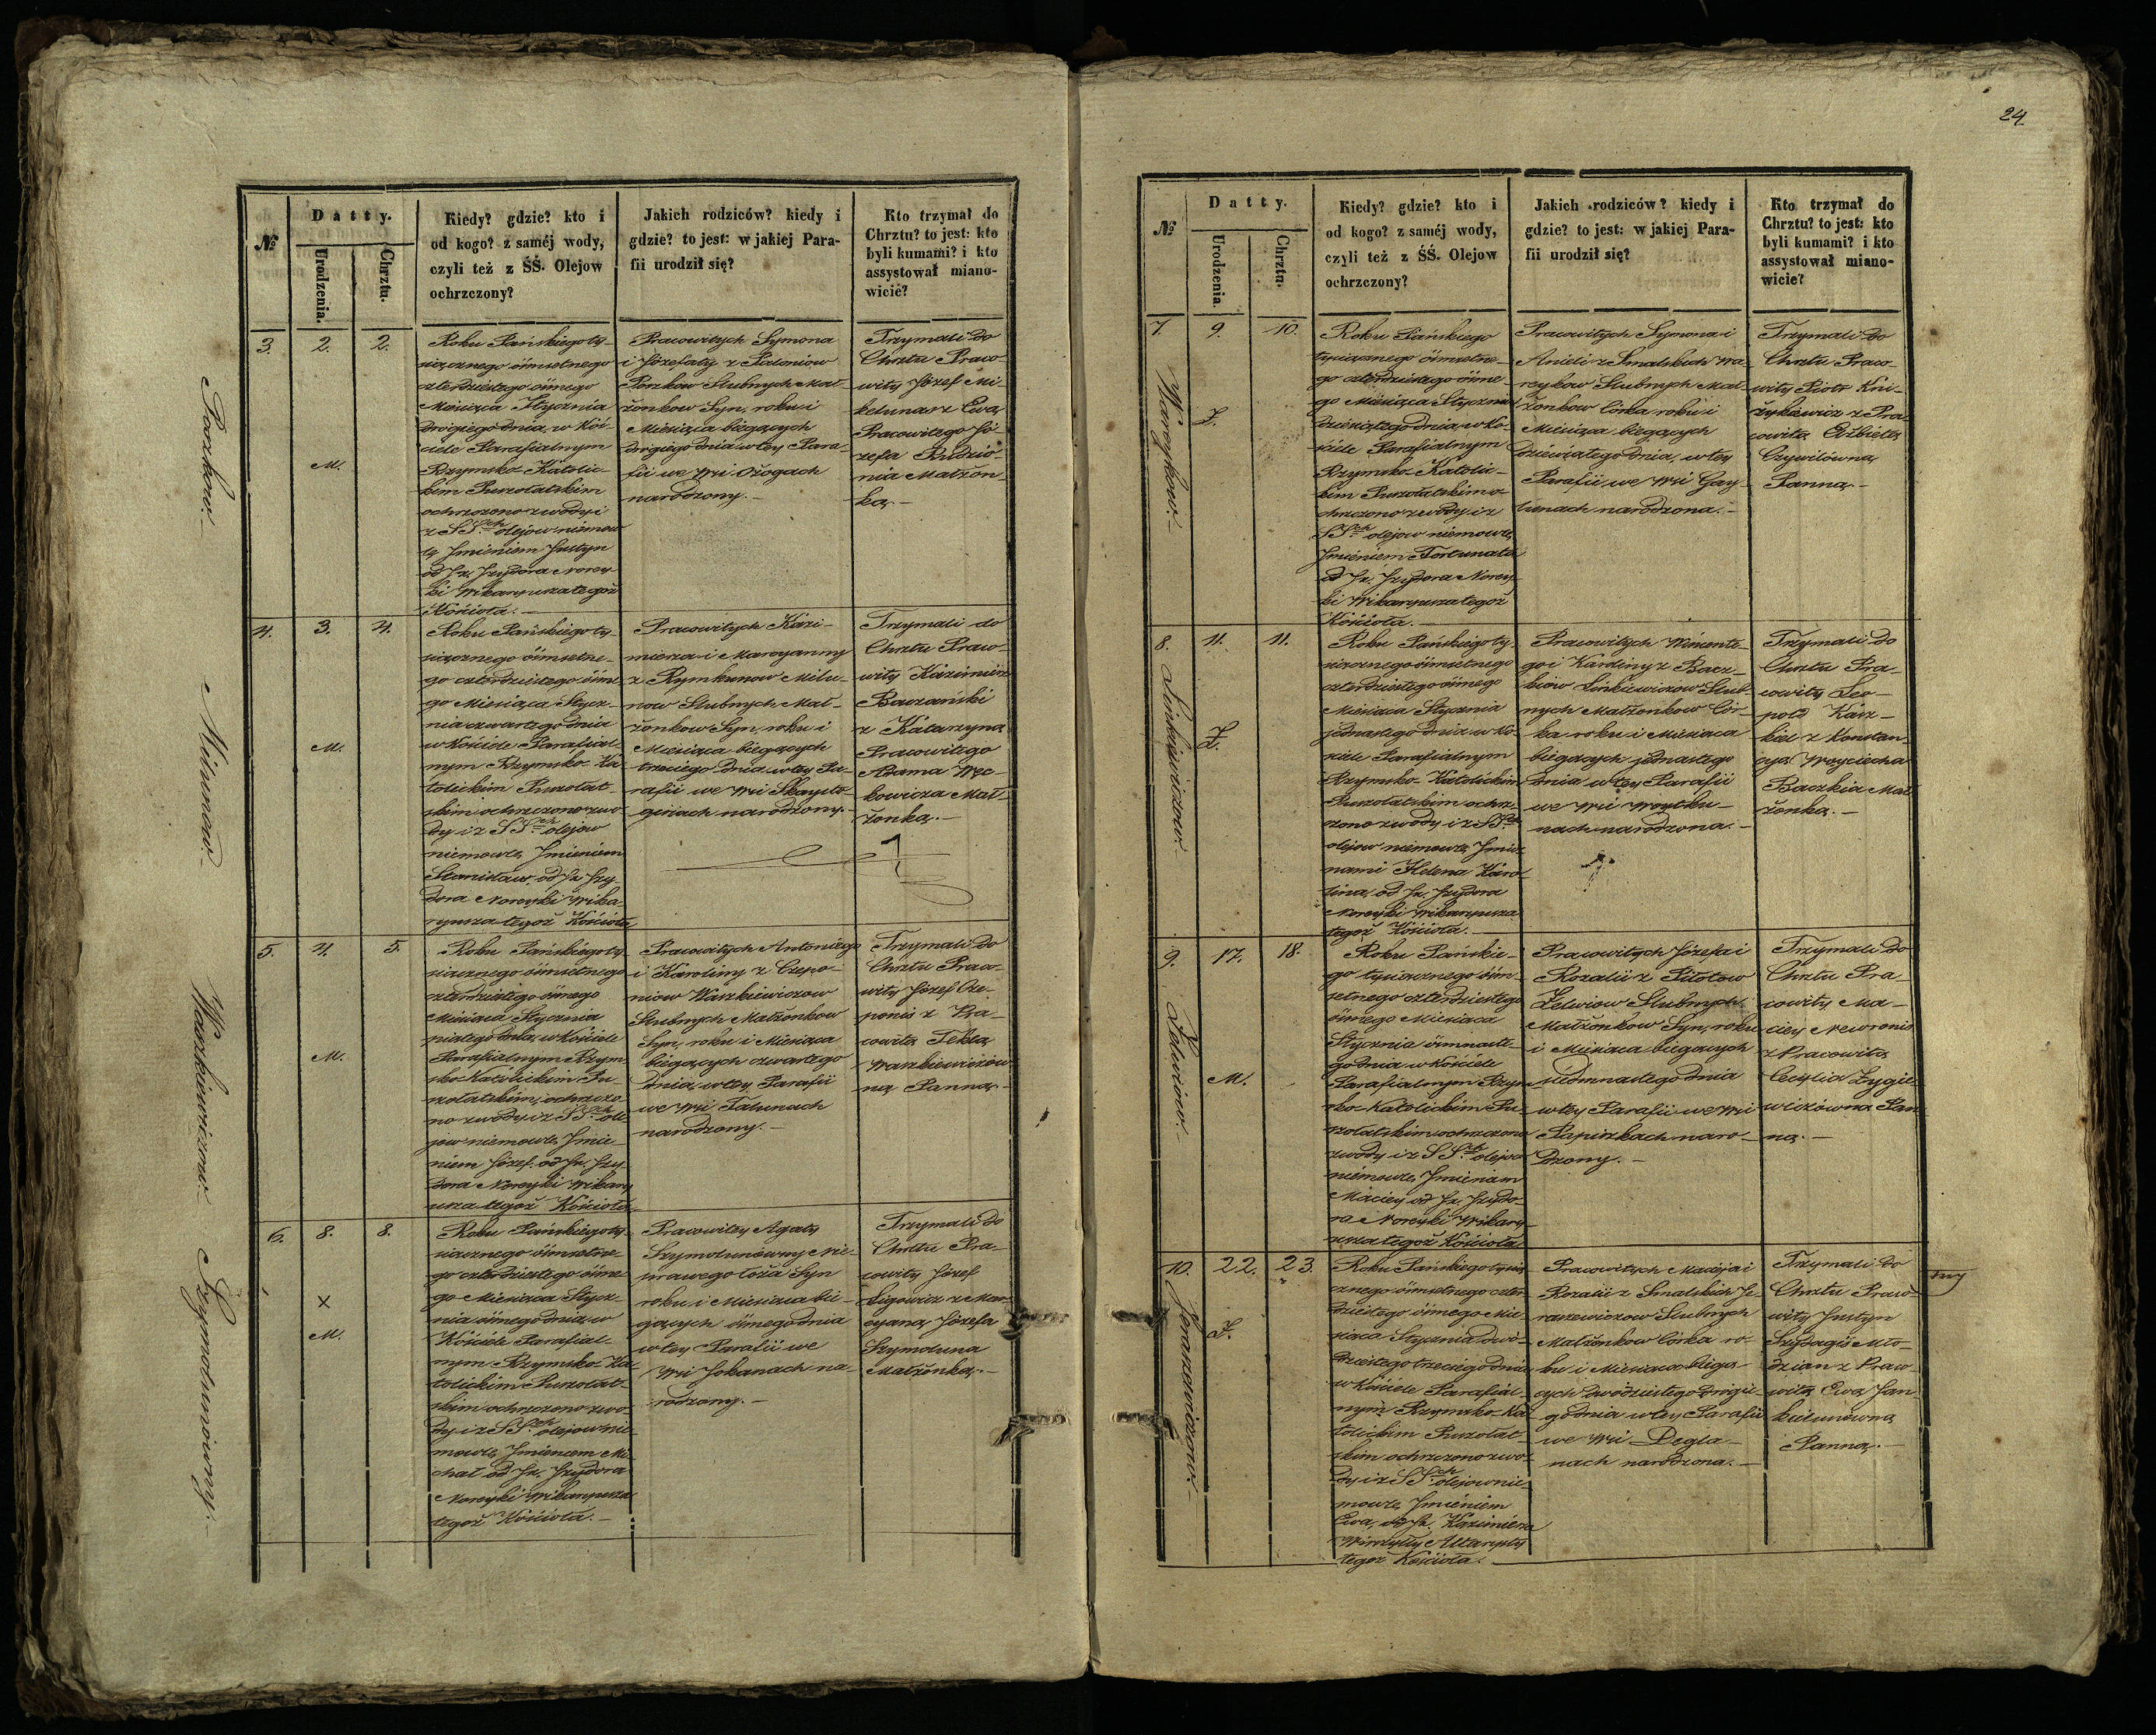 24
№
Datty.
Urodzenia.
Chrztu.
Kiedy? gdzie? kto i
od kogo? z saméj wody,
czyli też z ŚŚ. Olejow
ochrzczony?
Jakich rodziców? kiedy i
gdzie? to jest: w jakiej Para-
fii urodził się?
Kto trzymał do
Chrztu? to jest: kto
byli kumami? i kto
assystował miano-
wicie?
3.
2.
2.
M.
Roku Pańskiego ty-
siącznego óśmsetnego
czterdziestego ósmego
Miesiąca Stycznia
drógiego dnia, w Koś-
ciele Parafialnym
Rzymsko-Katolic-
kim
ochrzczono z wody i
z SSch olejow niemow-
lę Jmieniem Justyn
od Jx. Jzydora Norey-
ki Wikaryusza tegoż
Kościoła.
Pracowitych Symona
i Józefaty z
Slubnych Mał-
żonkow Syn, roku i
Miesiąca biegących
drógiego dnia w tey Para-
fii we Wsi Ożogach
narodzony.
Trzymali do
Chrztu Praco-
wity Józef Mi-
kelunas z Ewą
Pracowitego Jó-
zefa
Małżon-
ką.
4.
3.
4.
M.
Milunow
Roku Pańskiego ty-
siącznego óśmsetne-
go czterdziestego ósme-
go Miesiąca Stycz-
nia czwartego dnia
w Kościele Parafial-
nym Rzymsko-Ka-
tolickim
skim ochrzczono z wo-
dy i z SSch olejow
niemowlę Jmieniem
Stanisław, od Jx. Jzy-
dora Noreyki Wika-
ryusza tegoż Kościoła
Pracowitych Kazi-
mierza i Maryanny
z Rymkunow Milu-
now Slubnych Mał-
żonkow Syn, roku i
Miesiąca biegących
trzeciego dnia w tey Pa-
rafii we Wsi Skaysto-
giriach narodzony.
Trzymali do
Chrztu Praco-
wity Kazimierz
Baczański
z Katarzyną
Pracowitego
Adama
Mał-
żonką.
5.
4.
5.
M.
Waszkiewiczow
Roku Pańskiego ty-
siącznego óśmsetnego
czterdziestego ósmego
Miesiąca Stycznia
piątego dnia, w Kościele
Parafialnym Rzym-
sko-Katolickim
ochrzczo-
no z wody i z SSch ole-
jow niemowlę Jmie-
niem Józef od Jx. Jzy-
dora Noreyki Wikary-
usza tegoż Kościoła
Pracowitych Antoniego
i Karoliny z Czepo-
niow Waszkiewiczow
Slubnych Małżonkow
Syn, roku i Miesiąca
biegących czwartego
dnia, w tey Parafii
we Wsi Talunach
narodzony.
Trzymali do
Chrztu Praco-
wity Józef Cze-
ponis z Pra-
cowitą Teklą
Waszkiewiczów-
ną Panną.
6.
8.
8.
×
M.
Szymolunówny
Roku Pańskiego ty-
siącznego óśmsetne-
go czterdziestego ósme-
go Miesiąca Stycz-
nia ósmego dnia, w
Kościele Parafial-
nym Rzymsko-Ka-
tolickim
skim ochrzczono z wo-
dy i z SSch olejow nie-
mowlę Jmieniem Mi-
chał od Jx. Jzydora
Noreyki Wikaryusza
tegoż Kościoła.
Pracowitey Agaty
Szymolunówny Nie-
prawego łoża Syn
roku i Miesiąca bie-
gących ósmego dnia
w tey Parafii we
Wsi Jokanach na-
rodzony.
Trzymali do
Chrztu Pra-
cowity Józef
z Mar-
cyaną Józefa
Szymoluna
Małżonką.
№
Datty.
Urodzenia.
Chrztu.
Kiedy? gdzie? kto i
od kogo? z saméj wody,
czyli też z ŚŚ. Olejow
ochrzczony?
Jakich rodziców? kiedy i
gdzie? to jest: w jakiej Para-
fii urodził się?
Kto trzymał do
Chrztu? to jest: kto
byli kumami? i kto
assystował miano-
wicie?
7.
9.
10.
Ż.
Wareykow
Roku Pańskiego
tysiącznego óśmsetne-
go czterdziestego ósme-
go Miesiąca Stycznia
dziesiątego dnia w Ko-
ściele Parafialnym
Rzymsko-Katolic-
kim
chrzczono z wody i z
SSch olejow niemowlę
Jmieniem Fortunata
od Jx. Jzydora Norey-
ki Wikaryusza tegoż
Kościoła.
Pracowitych Symona i
Anieli z Smalskich Wa-
reykow Slubnych Mał-
żonkow Córka roku i
Miesiąca biegących
dziewiątego dnia, w tey
Parafii we Wsi Gay-
lunach narodzona.
Trzymali do
Chrztu Praco-
wity Piotr Kni-
żykiewicz z Pra-
cowitą Elżbietą
Czywilówną
Panną.
8.
11.
11.
Ż.
Sinkiewiczow
Roku Pańskiego ty-
siącznego óśmsetnego
czterdziestego ósmego
Miesiąca Stycznia
jednastego dnia w Ko-
ściele Parafialnym
Rzymsko-Katolickim
ochrz-
czono z wody i z SSch
olejow niemowlę Jmio-
nami Helena Karo-
lina, od Jx. Jzydora
Noreyki Wikaryusza
tegoż Kościoła.
Pracowitych Wincente-
go i Karoliny z Bacz-
kiow Sinkiewiczow Slub-
nych Małżonkow Cór-
ka roku i Miesiąca
biegących jednastego
dnia w tey Parafii
we Wsi Woytku-
nach narodzona.
Trzymali do
Chrztu Pra-
cowity Leo-
pold
z Konstan-
cyą Woyciecha
Baczkia Mał-
żonką.
9.
17.
18.
M.
Żelwiow
Roku Pańskie-
go tysiącznego óśm-
setnego czterdziestego
ósmego Miesiąca
Stycznia ósmnaste-
go dnia w Kościele
Parafialnym Rzym-
sko-Katolickim
ochrzczono
z wody i z SSch olejow
niemowlę Jmieniem
Maciey od Jx. Jzydo-
ra Noreyki Wikary-
usza tegoż Kościoła
Pracowitych Józefa i
Rozalii z Pilotow
Żelwiow Slubnych
Małżonkow Syn, roku
i Miesiąca biegących
siedmnastego dnia
w tey Parafii we Wsi
Papiszkach naro-
dzony.
Trzymali do
Chrztu Pra-
cowity Ma-
ciey Newronis
z Pracowitą
Cecylią Żygie-
wiczówną Pan-
ną.
10.
22.
23.
Ż.
Jeraszewiczow
Roku Pańskiego tysią-
cznego óśmsetnego czter-
dziestego ósmego Mie-
siąca Stycznia dwó-
dziestego trzeciego dnia
w Kościele Parafial-
nym Rzymsko-Ka-
tolickim
skim ochrzczono z wo-
dy i z SSch olejow nie-
mowlę Jmieniem
Ewa, od Jx. Kazimierza
tegoż Kościoła.
Pracowitych Macieja i
Rozalii z Smalskich Je-
raszewiczow Slubnych
Małżonkow Córka ro-
ku i Miesiąca biegą-
cych dwódziestego drógie-
go dnia w tey Parafii
we Wsi Degla-
nach narodzona.
Trzymali do
Chrztu Praco-
wity Justyn
Szydagis Mło-
dzian z Praco-
witą Ewą Jan-
kielunówną
Panną.